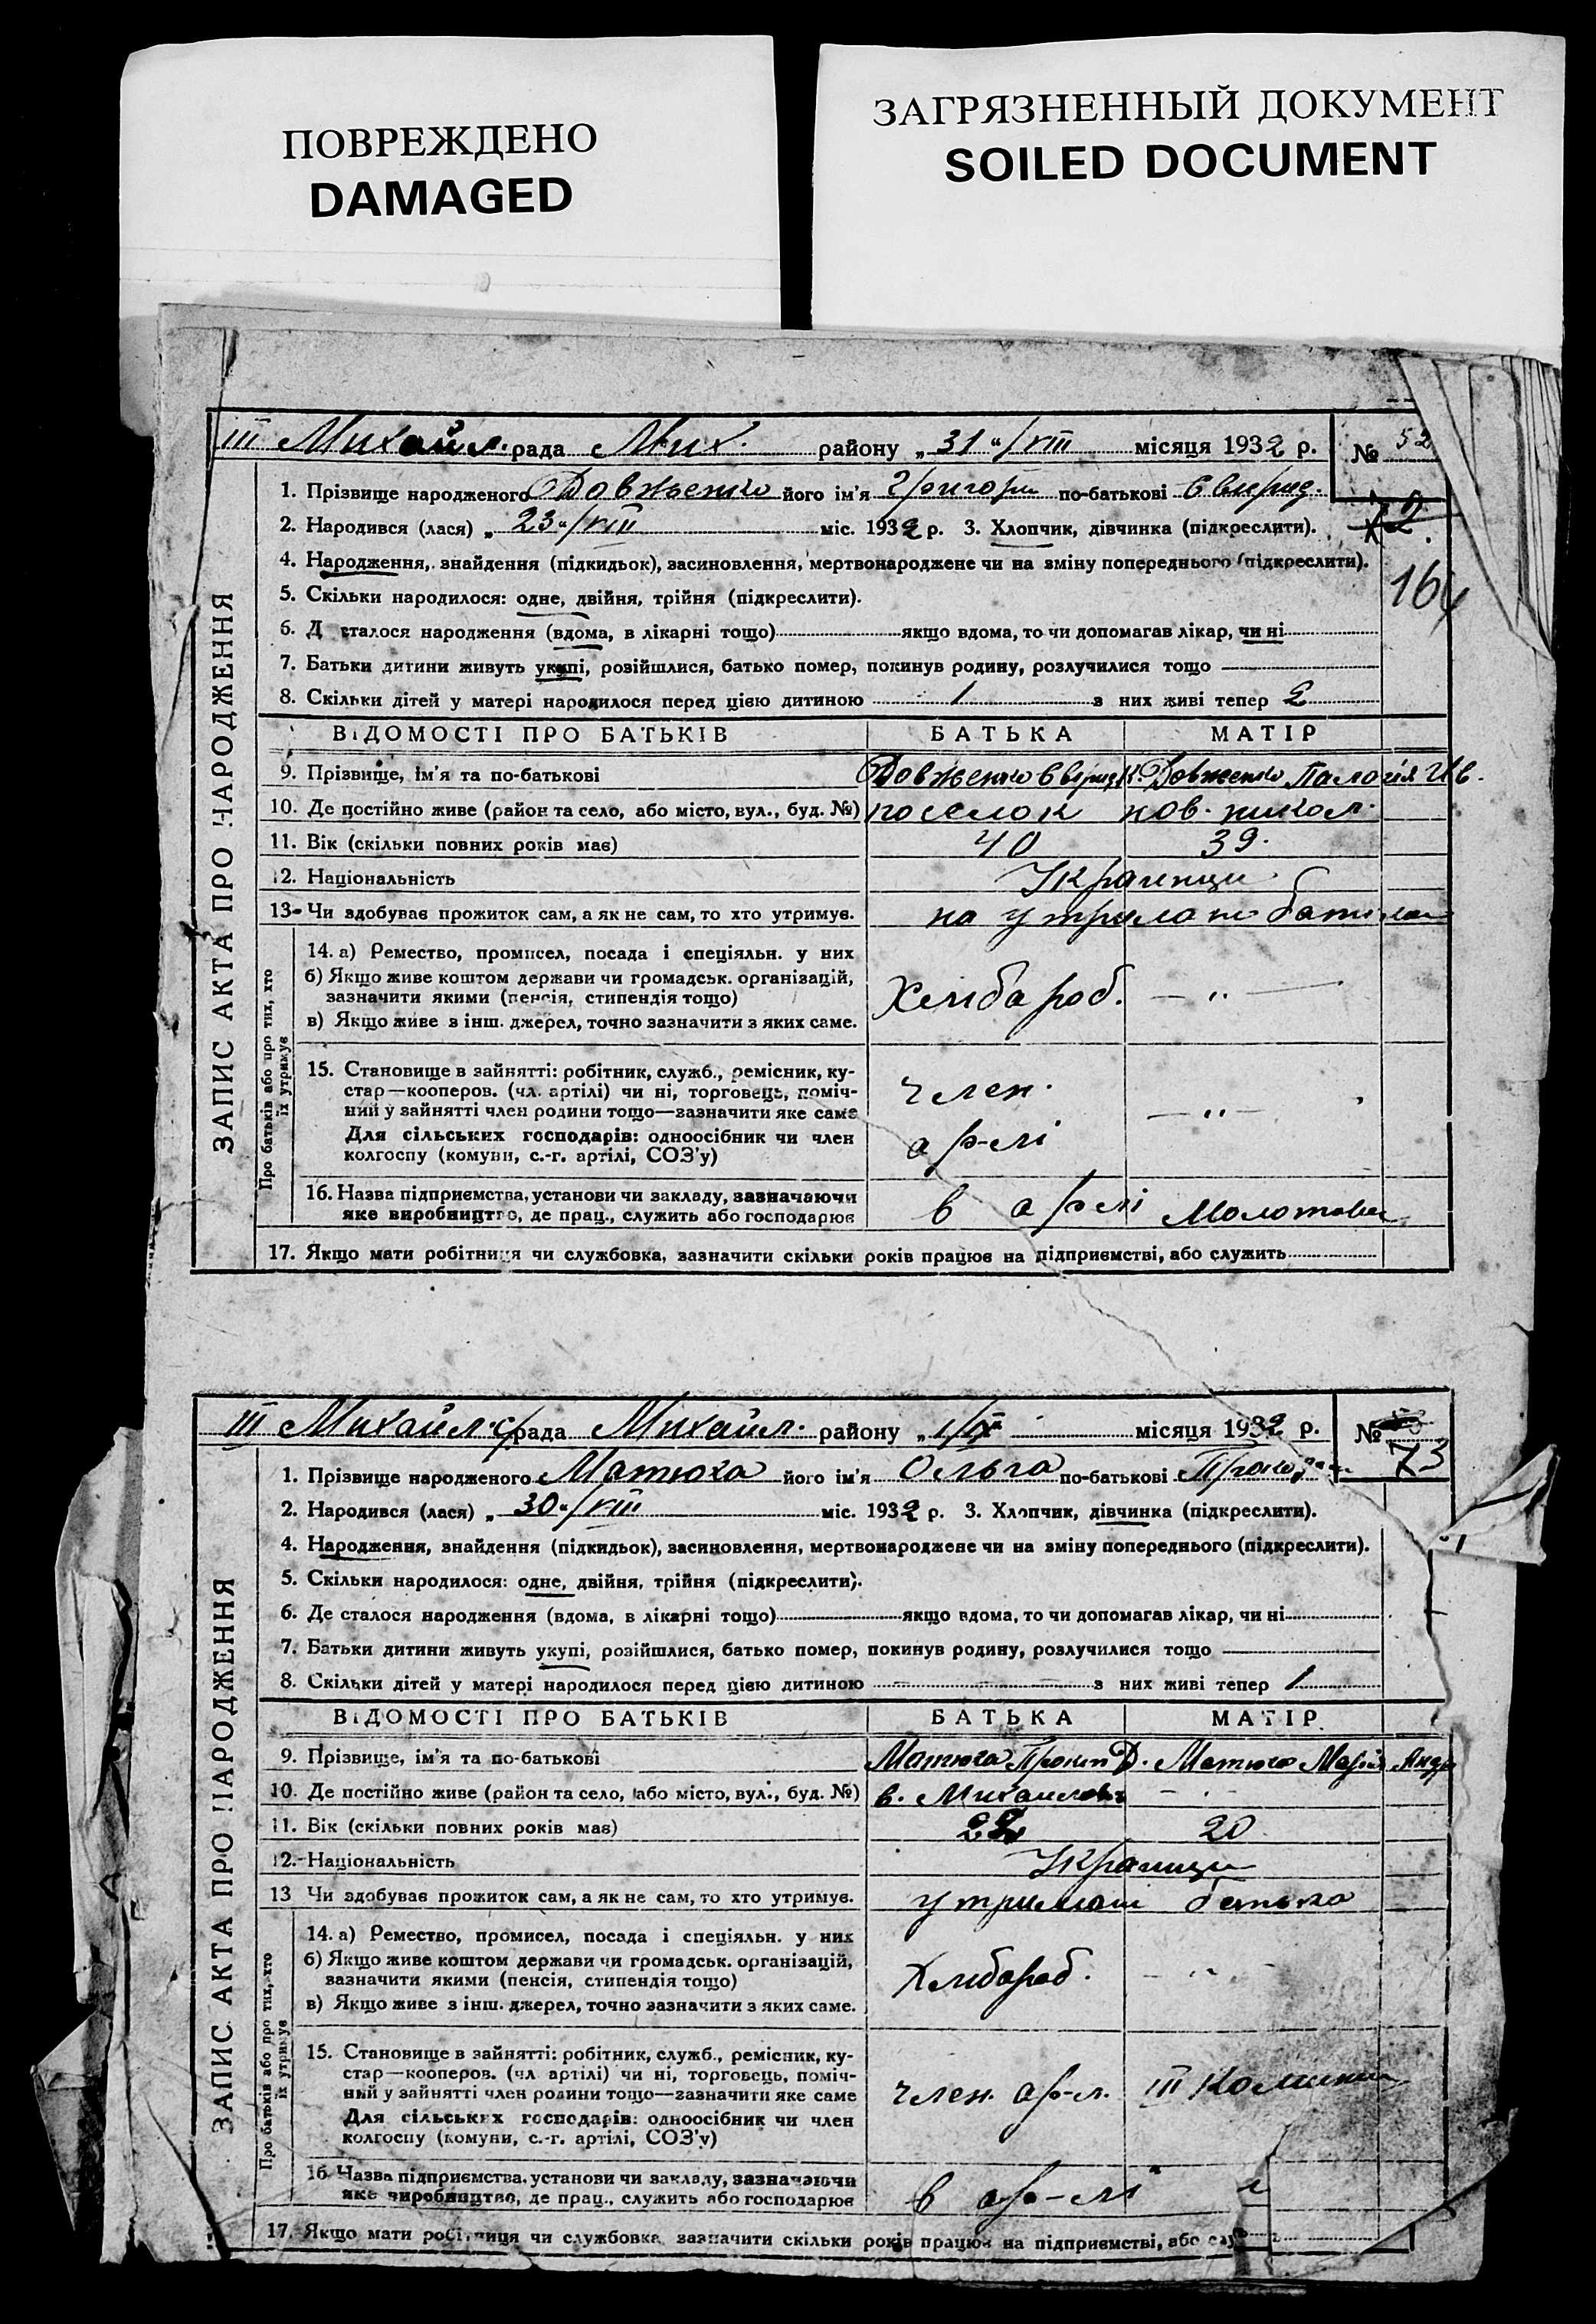 ПОВРЕЖДЕНО
DAMAGED
ЗАГРЯЗНЕННЫЙ ДОКУМЕНТ
SOILED DOCUMENT
III Михайл. рада Мих. району „31"/VIII місяця 1932 р. № 52
1. Прізвище народженого Довженко його ім'я Григорій по-батькові Свирид.
2. Народився (лася) „23"/VIII міс. 1932 р. 3. Хлопчик, дівчинка (підкреслити). 72.
4. Народження, знайдення (підкидьок), засиновлення, мертвонароджене чи на зміну попереднього (підкреслити).
164
5. Скільки народилося: одне, двійня, трійня (підкреслити).
6. Д сталося народження (вдома, в лікарні тощо) якщо вдома, то чи допомагав лікар, чи ні
7. Батьки дитини живуть укупі, розійшлися, батько помер, покинув родину, розлучилися тощо
8. Скільки дітей у матері народилося перед цією дитиною 1 з них живі тепер 2
ВІДОМОСТІ ПРО БАТЬКІВ БАТЬКА МАТІР
9. Прізвище, ім'я та по-батькові Довженко Свирид К. Довженко Палагія Ив.
10. Де постійно живе (район та село, або місто, вул., буд. №) поселок нов. никол.
11. Вік (скільки повних років має) 40 39.
12. Національність Українци
13. Чи здобуває прожиток сам, а як не сам, то хто утримує. на утримані
14. а) Ремество, промисел, посада і спеціяльн. у них
б) Якщо живе коштом держави чи громадськ. організацій,
зазначити якими (пенсія, стипендія тощо) Хлібароб. — „ —
в) Якщо живе з інш. джерел, точно зазначити з яких саме.
15. Становище в зайнятті: робітник, служб., ремісник, ку-
стар—кооперов. (чл. артілі) чи ні, торговець, поміч- член.
ний у зайнятті член родини тощо—зазначити яке саме — „ —
Для сільських господарів: одноосібник чи член ар-лі
колгоспу (комуни, с.-г. артілі, СОЗ'у)
16. Назва підприємства, установи чи закладу, зазначаючи
яке виробництво, де прац., служить або господарює в ар-лі Молотова
17. Якщо мати робітниця чи службовка, зазначити скільки років працює на підприємстві, або служить
ЗАПИС АКТА ПРО НАРОДЖЕННЯ
Про батьків або про тих, хто
їх утримує
III Михайл. с/рада Михайл. району „1/IX місяця 1932 р. № 73
1. Прізвище народженого Матюха його ім'я Ольга по-батькові
2. Народився (лася) „30"/VIII міс. 1932 р. 3. Хлопчик, дівчинка (підкреслити).
4. Народження, знайдення (підкидьок), засиновлення, мертвонароджене чи на зміну попереднього (підкреслити).
5. Скільки народилося: одне, двійня, трійня (підкреслити).
6. Де сталося народження (вдома, в лікарні тощо) якщо вдома, то чи допомагав лікар, чи ні
7. Батьки дитини живуть укупі, розійшлися, батько помер, покинув родину, розлучилися тощо
8. Скільки дітей у матері народилося перед цією дитиною — з них живі тепер 1
ВІДОМОСТІ ПРО БАТЬКІВ БАТЬКА МАТІР
9. Прізвище, ім'я та по-батькові Матюха Прокіп Д. Матюха Марія Андр
10. Де постійно живе (район та село, або місто, вул., буд. №) в. Михаиловк — „ —
11. Вік (скільки повних років має) 22 20
12. Національність Українци
13 Чи здобуває прожиток сам, а як не сам, то хто утримує. утримані батька
14. а) Ремество, промисел, посада і спеціяльн. у них
б) Якщо живе коштом держави чи громадськ. організацій,
зазначити якими (пенсія, стипендія тощо) Хлібароб. — „ —
в) Якщо живе з інш. джерел, точно зазначити з яких саме.
15. Становище в зайнятті: робітник, служб., ремісник, ку-
стар—кооперов. (чл артілі) чи ні, торговець, поміч-
ний у зайнятті член родини тощо—зазначити яке саме член ар-л. III
Для сільських господарів: одноосібник чи член
колгоспу (комуни, с.-г. артілі, СОЗ'у)
16. Назва підприємства, установи чи закладу, зазначаючи
яке виробництво, де прац., служить або господарює в ар-лі
17. Якщо мати робітниця чи службовка зазначити скільки років працює на підприємстві, або слу
ЗАПИС АКТА ПРО НАРОДЖЕННЯ
Про батьків або про тих, хто
їх утримує